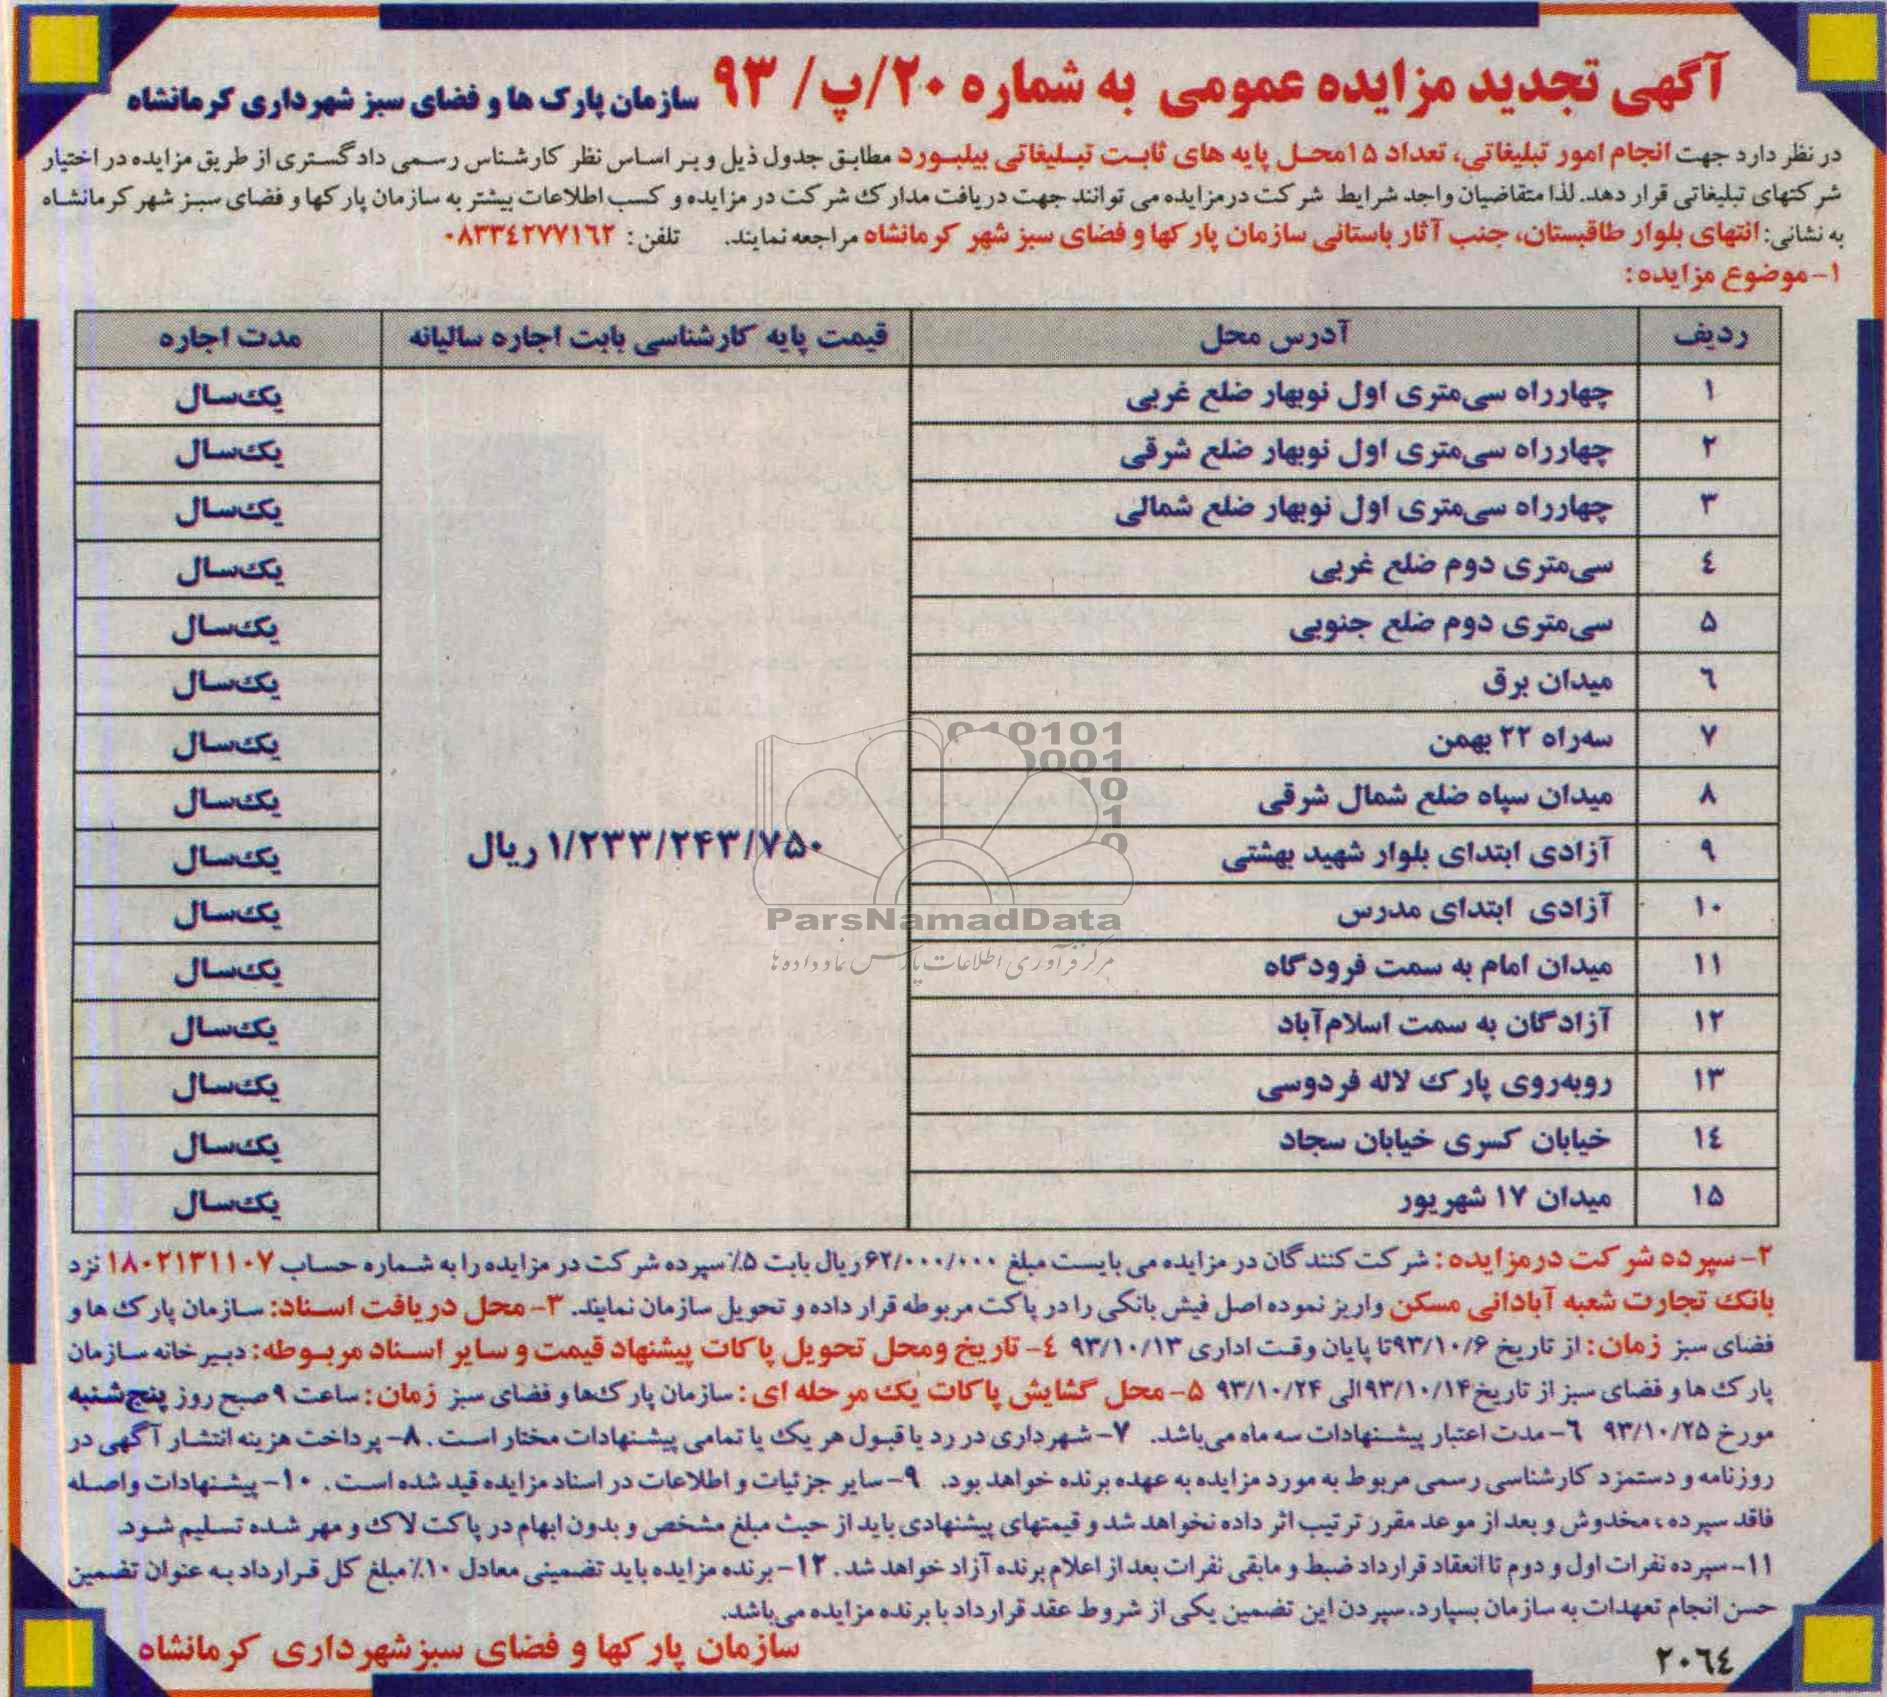 آگهی تجدید مزایده عمومی به شماره ۲۰/پ/ ۹۳ سازمان پارک ها و فضای سبز شهرداری کرمانشاه
در نظر دارد جهت انجام امور تبلیغاتی، تعداد ۱۵محل پایه های ثابت تبلیغاتی بیلبورد مطابق جدول ذیل و بر اساس نظر کارشناس رسمی دادگستری از طریق مزایده در اختیار
شرکتهای تبلیغاتی قرار دهد. لذا متقاضیان واجد شرایط شرکت درمزایده می توانند جهت دریافت مدارک شرکت در مزایده و کسب اطلاعات بیشتر به سازمان پارکها و فضای سبز شهر کرمانشاه
به نشانی: انتهای بلوار طاقبستان، جنب آثار باستانی سازمان پارکها و فضای سبز شهر کرمانشاه مراجعه نمایند. تلفن: ۰۸۳۳٤۲۷۷۱٦۲
۱-موضوع مزایده:
ردیف آدرس محل قیمت پایه کارشناسی بابت اجاره سالیانه مدت اجاره
۱ چهارراه سی‌متری اول نوبهار ضلع غربی یک‌سال
۲ چهارراه سی‌متری اول نوبهار ضلع شرقی یک‌سال
۳ چهارراه سی‌متری اول نوبهار ضلع شمالی یک‌سال
٤ سی‌متری دوم ضلع غربی یک‌سال
۵ سی‌متری دوم ضلع جنوبی یک‌سال
٦ میدان برق یک‌سال
۷ سه‌راه ۲۲ بهمن یک‌سال
۸ میدان سپاه ضلع شمال شرقی یک‌سال
۱/۲۳۳/۲۴۳/۷۵۰ ریال
۹ آزادی ابتدای بلوار شهید بهشتی یک‌سال
۱۰ آزادی ابتدای مدرس یک‌سال
۱۱ میدان امام به سمت فرودگاه یک‌سال
۱۲ آزادگان به سمت اسلام‌آباد یک‌سال
۱۳ روبه‌روی پارک لاله فردوسی یک‌سال
۱٤ خیابان کسری خیابان سجاد یک‌سال
۱۵ میدان ۱۷ شهریور یک‌سال
010101
0001
10
1
0
ParsNamadData
مرکز فرآوری اطلاعات پارس نماد داده ها
۲- سپرده شرکت درمزایده: شرکت کنندگان در مزایده می بایست مبلغ ۶۲/۰۰۰/۰۰۰ ریال بابت ۵٪ سپرده شرکت در مزایده را به شماره حساب ۱۸۰۲۱۳۱۱۰۷ نزد
بانک تجارت شعبه آبادانی مسکن واریز نموده اصل فیش بانکی را در پاکت مربوطه قرار داده و تحویل سازمان نمایند. ۳- محل دریافت اسناد: سازمان پارک ها و
فضای سبز زمان: از تاریخ ۹۳/۱۰/۶ تا پایان وقت اداری ۹۳/۱۰/۱۳ ٤- تاریخ ومحل تحویل پاکات پیشنهاد قیمت و سایر اسناد مربوطه: دبیرخانه سازمان
پارک ها و فضای سبز از تاریخ ۹۳/۱۰/۱۴ الی ۹۳/۱۰/۲۴ ۵- محل گشایش پاکات یک مرحله ای: سازمان پارک‌ها و فضای سبز زمان: ساعت ۹ صبح روز پنج‌شنبه
مورخ ۹۳/۱۰/۲۵ ٦- مدت اعتبار پیشنهادات سه ماه می‌باشد. ۷- شهرداری در رد یا قبول هر یک یا تمامی پیشنهادات مختار است. ۸- پرداخت هزینه انتشار آگهی در
روزنامه و دستمزد کارشناسی رسمی مربوط به مورد مزایده به عهده برنده خواهد بود. ۹- سایر جزئیات و اطلاعات در اسناد مزایده قید شده است. ۱۰- پیشنهادات واصله
فاقد سپرده، مخدوش و بعد از موعد مقرر ترتیب اثر داده نخواهد شد و قیمتهای پیشنهادی باید از حیث مبلغ مشخص و بدون ابهام در پاکت لاک و مهر شده تسلیم شود.
۱۱- سپرده نفرات اول و دوم تا انعقاد قرارداد ضبط و مابقی نفرات بعد از اعلام برنده آزاد خواهد شد. ۱۲- برنده مزایده باید تضمینی معادل ۱۰٪ مبلغ کل قرارداد به عنوان تضمین
حسن انجام تعهدات به سازمان بسپارد. سپردن این تضمین یکی از شروط عقد قرارداد با برنده مزایده می‌باشد.
سازمان پارکها و فضای سبز شهرداری کرمانشاه
۲۰٦٤